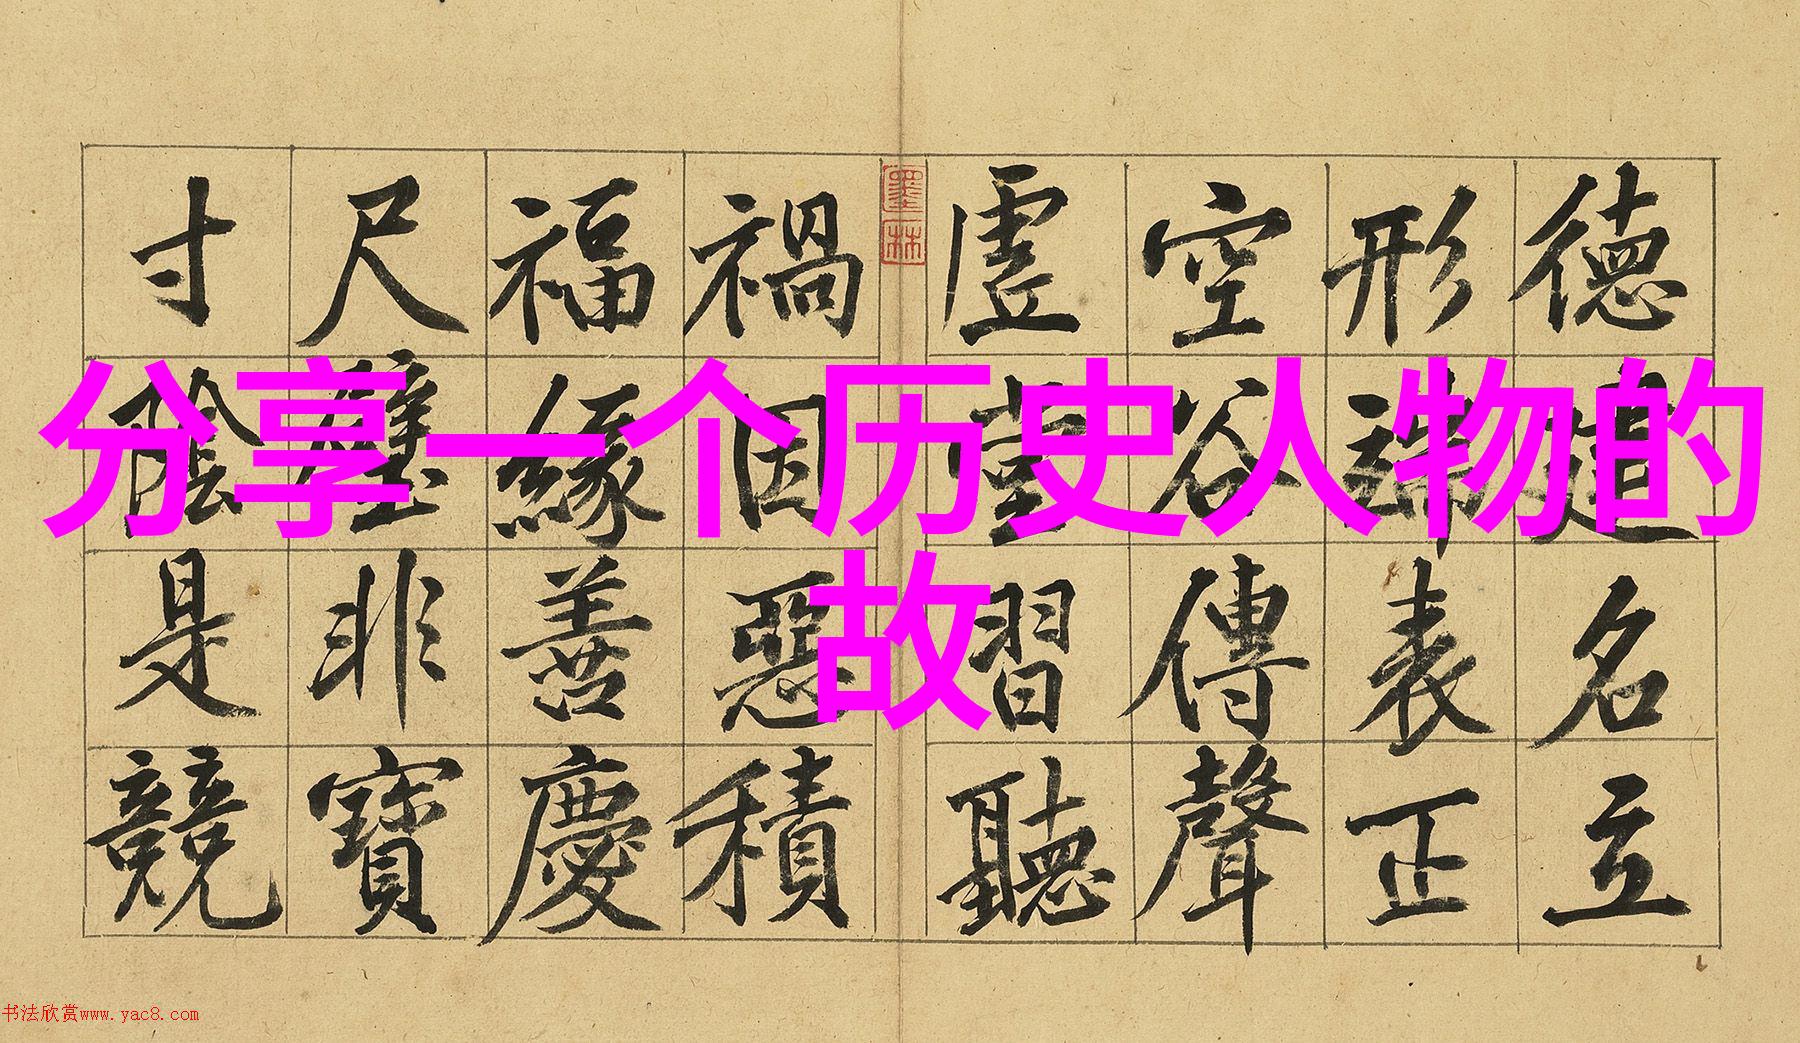 分享一个历史人物的
故
德建名立
形端表正
空谷傳聲
虛堂習聽
禍因惡積
福緣善慶
尺璧非寶
寸陰是競
墨林
书法欣赏www.yac8.com